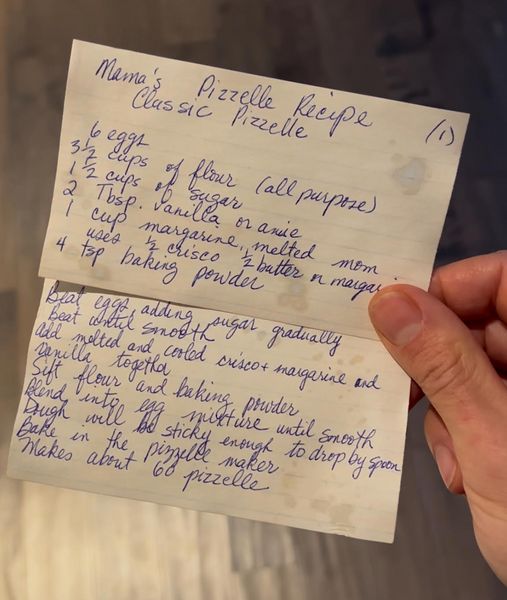 Mama's Pizzelle Recipe
Classic Pizzelle
(1)
6 eggs
3 1/2 cups of flour (all purpose)
1 1/2 cups of sugar
2 Tbsp. vanilla or anise
1 cup margarine, melted mom
uses 1/2 crisco 1/2 butter or
4 tsp baking powder
Beat eggs, adding sugar gradually
beat until smooth
add melted and cooled crisco + margarine and
vanilla together
Sift flour and baking powder
Blend into egg mixture until smooth
Dough will be sticky enough to drop by spoon
Bake in the pizzelle maker
Makes about 60 pizzelle